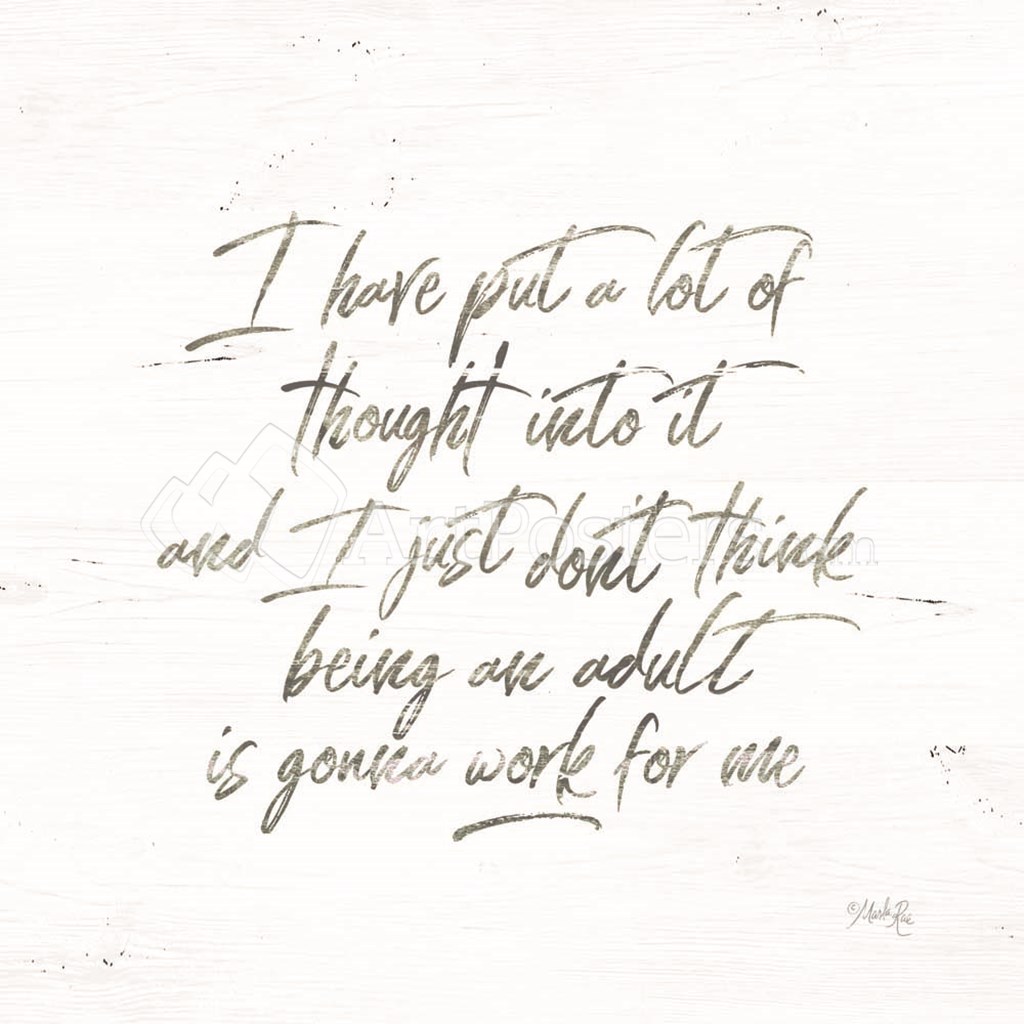 I have put a lot of
thought into it
and I just don't think
being an adult
is gonna work for me
ArtPoster
©Marla Rae